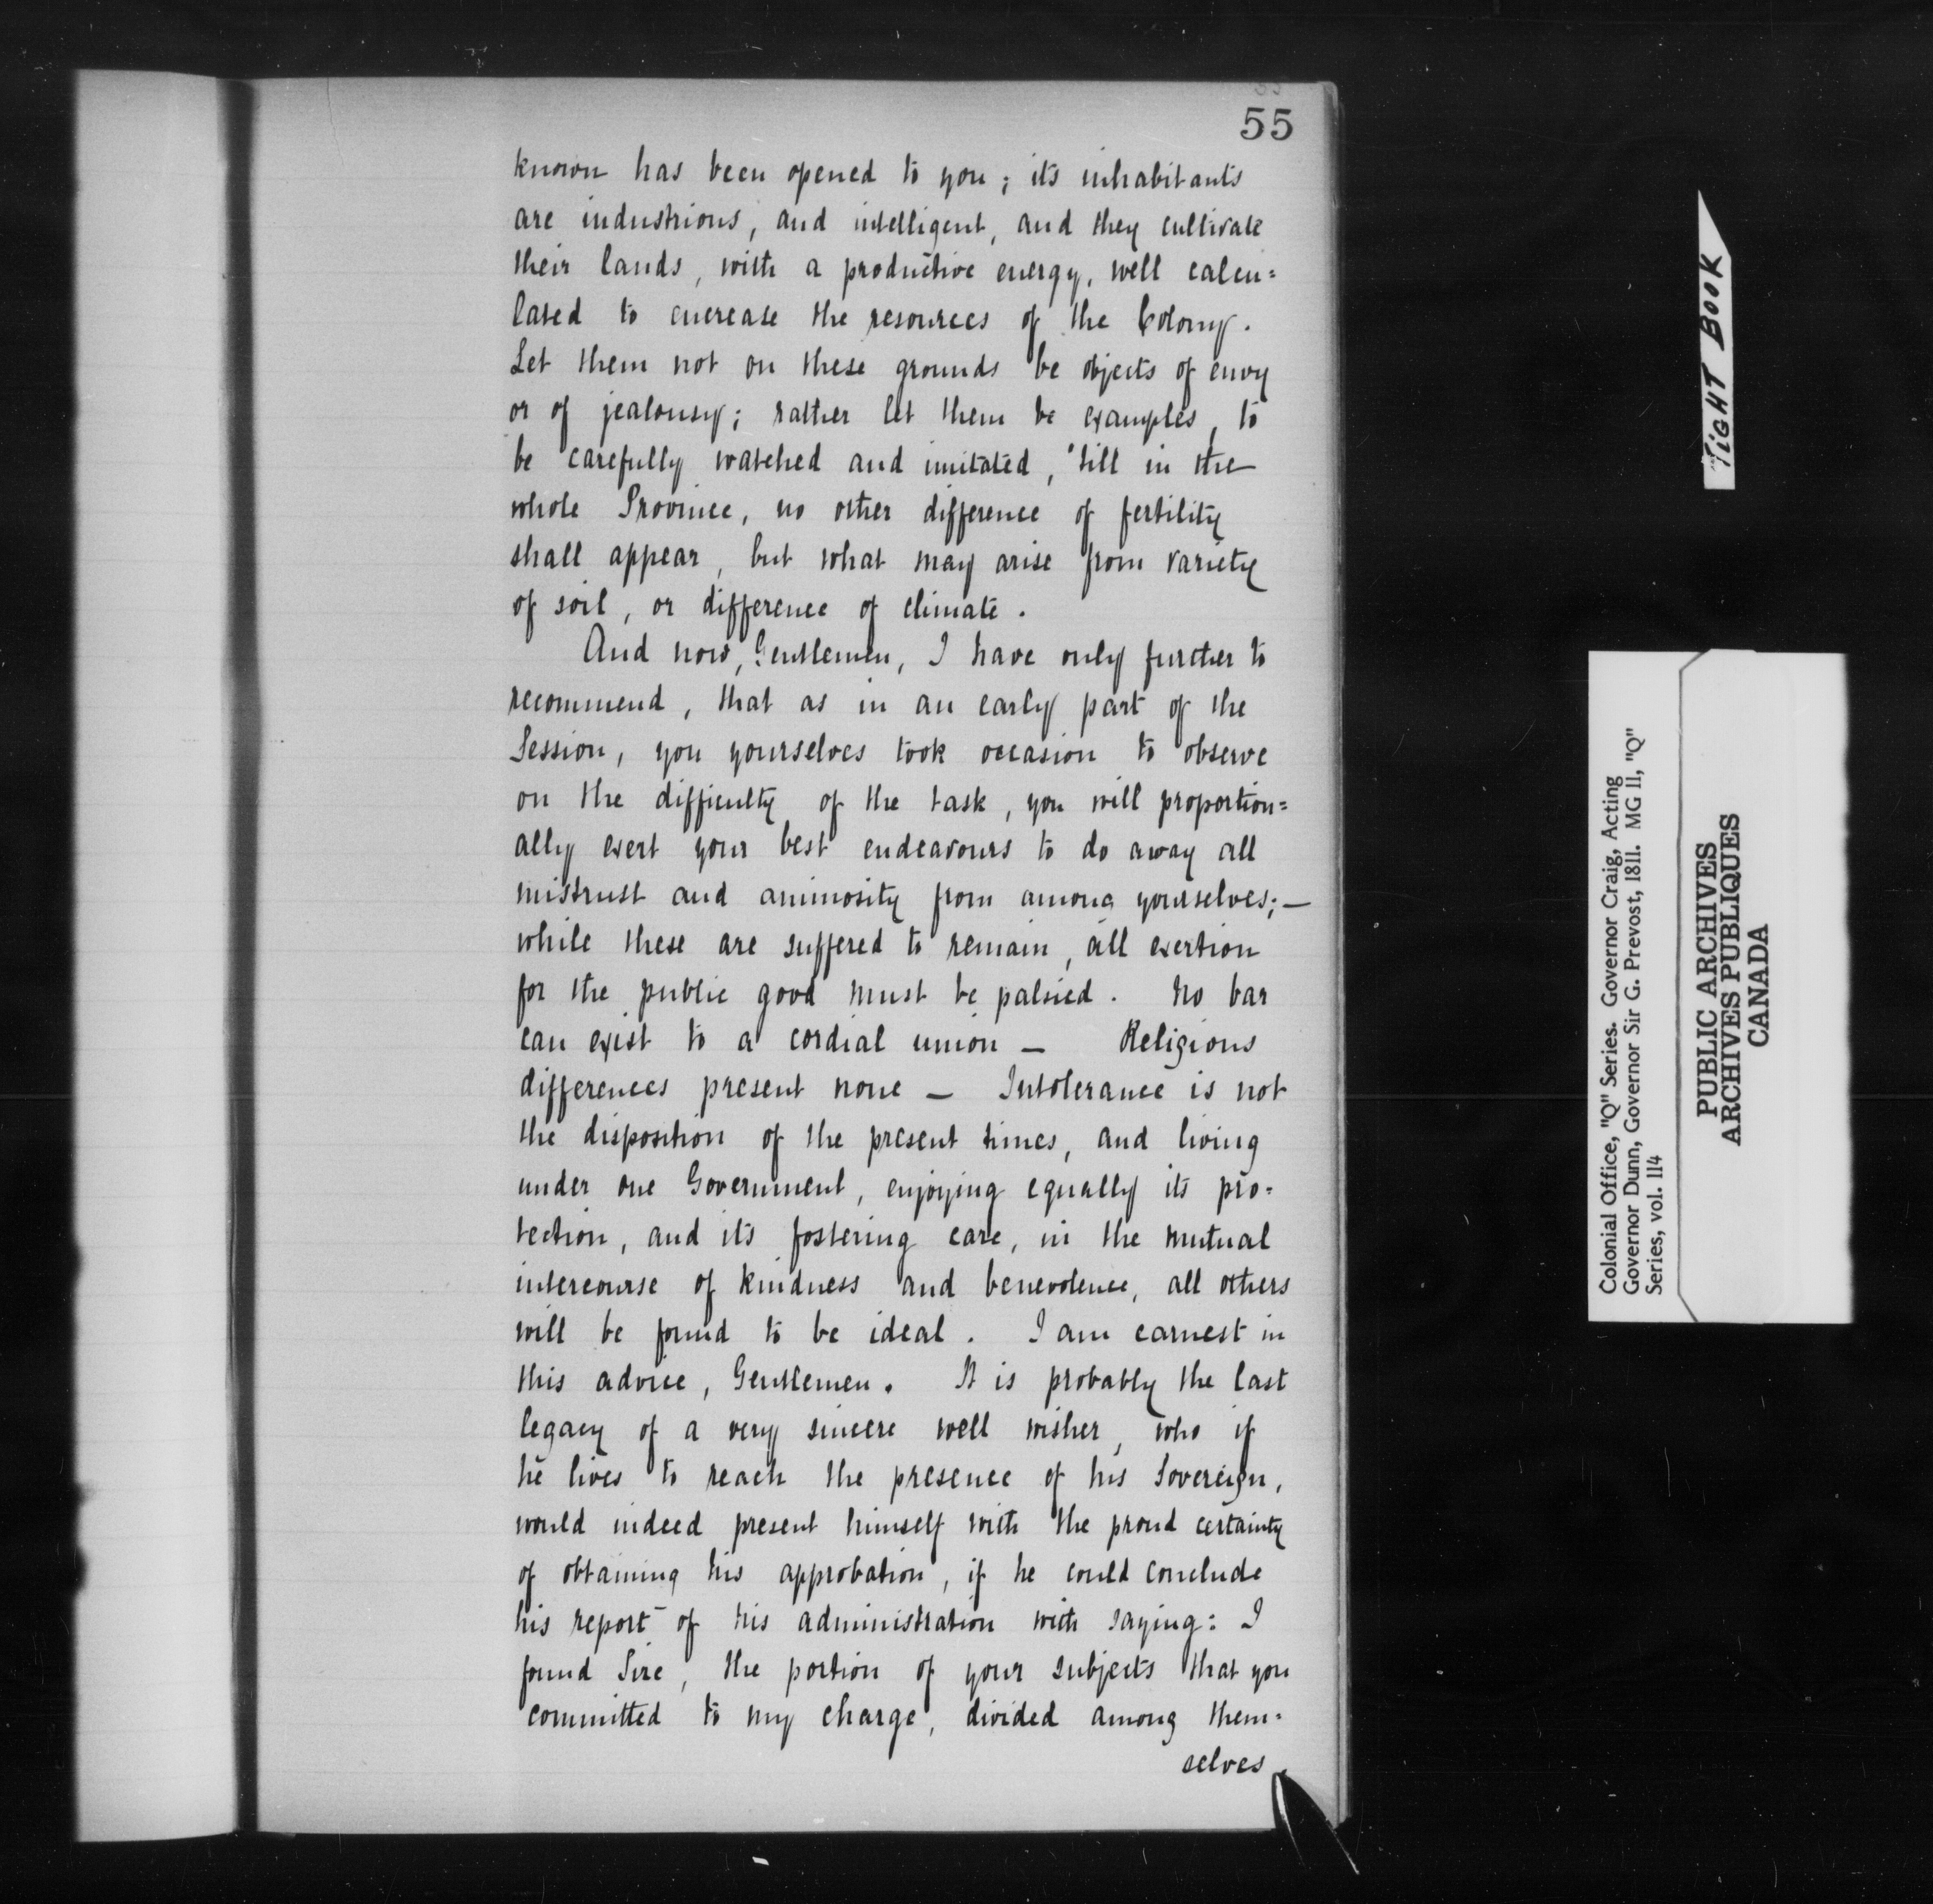 55
known has been opened to you; its inhabitants
are industrious, and intelligent, and they cultivate
their lands, with a productive energy, well calcu=
lated to encrease the resources of the Colony.
Let them not on these grounds be objects of envy
or of jealousy; rather let them be examples, to
be carefully watched and imitated, 'till in the
whole Province, no other difference of fertility
shall appear, but what may arise from variety
of soil, or difference of climate.
And now, Gentlemen, I have only further to
recommend, that as in an early part of the
Session, you yourselves took occasion to observe
on the difficulty of the task, you will proportion=
ally exert your best endeavours to do away all
mistrust and animosity from among yourselves;—
while these are suffered to remain, all exertion
for the public good must be palsied. No bar
can exist to a cordial union — Religious
differences present none — Intolerance is not
the disposition of the present times, and living
under one Government, enjoying equally its pro=
tection, and its fostering care, in the mutual
intercourse of kindness and benevolence, all others
will be found to be ideal. I am earnest in
this advice, Gentlemen. It is probably the last
legacy of a very sincere well wisher, who if
he lives to reach the presence of his Sovereign,
would indeed present himself with the proud certainty
of obtaining his approbation, if he could conclude
his report of his administration with saying: I
found Sire, the portion of your subjects that you
committed to my charge, divided among them=
selves,
TIGHT BOOK
Colonial Office, "Q" Series. Governor Craig, Acting
Governor Dunn, Governor Sir G. Prevost, 1811. MG 11, "Q"
Series, vol. 114
PUBLIC ARCHIVES
ARCHIVES PUBLIQUES
CANADA